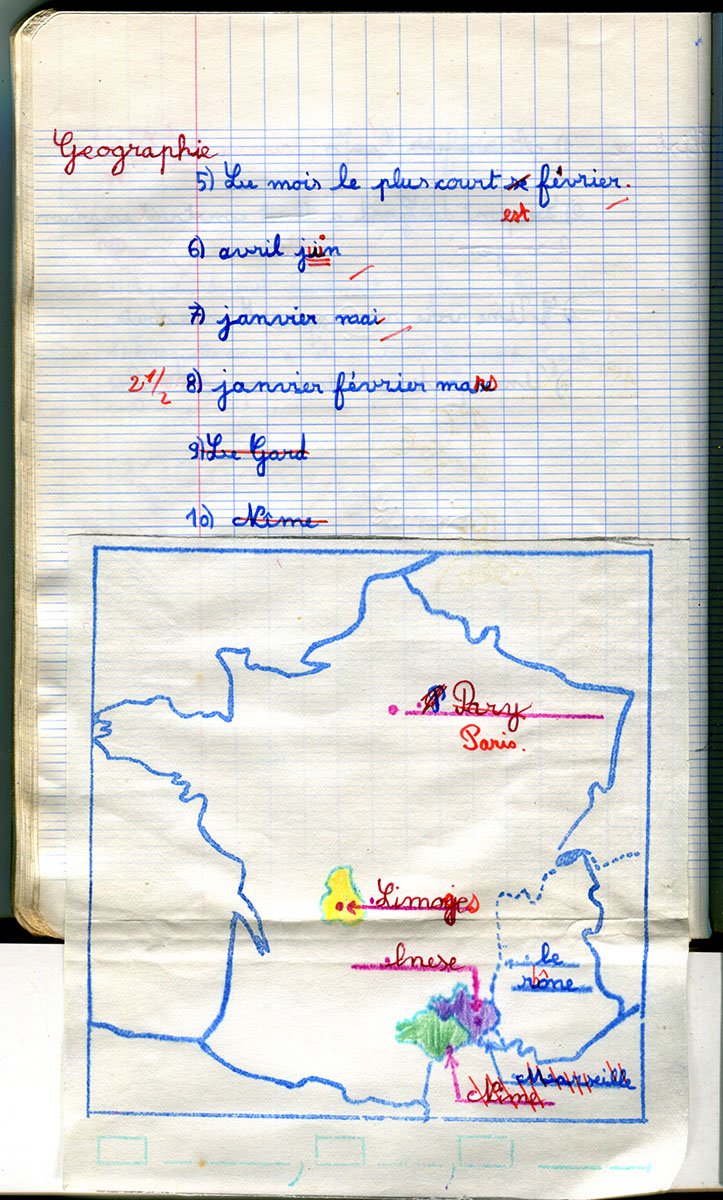 Geographie
5) Le mois le plus court février.
est
6) avril juin
7) janvier mai
2 1/2 8) janvier février mars
9) Le Gard
10) Nîme
Pary
Paris.
Limoges
le
rhône
Marseille
Nîme